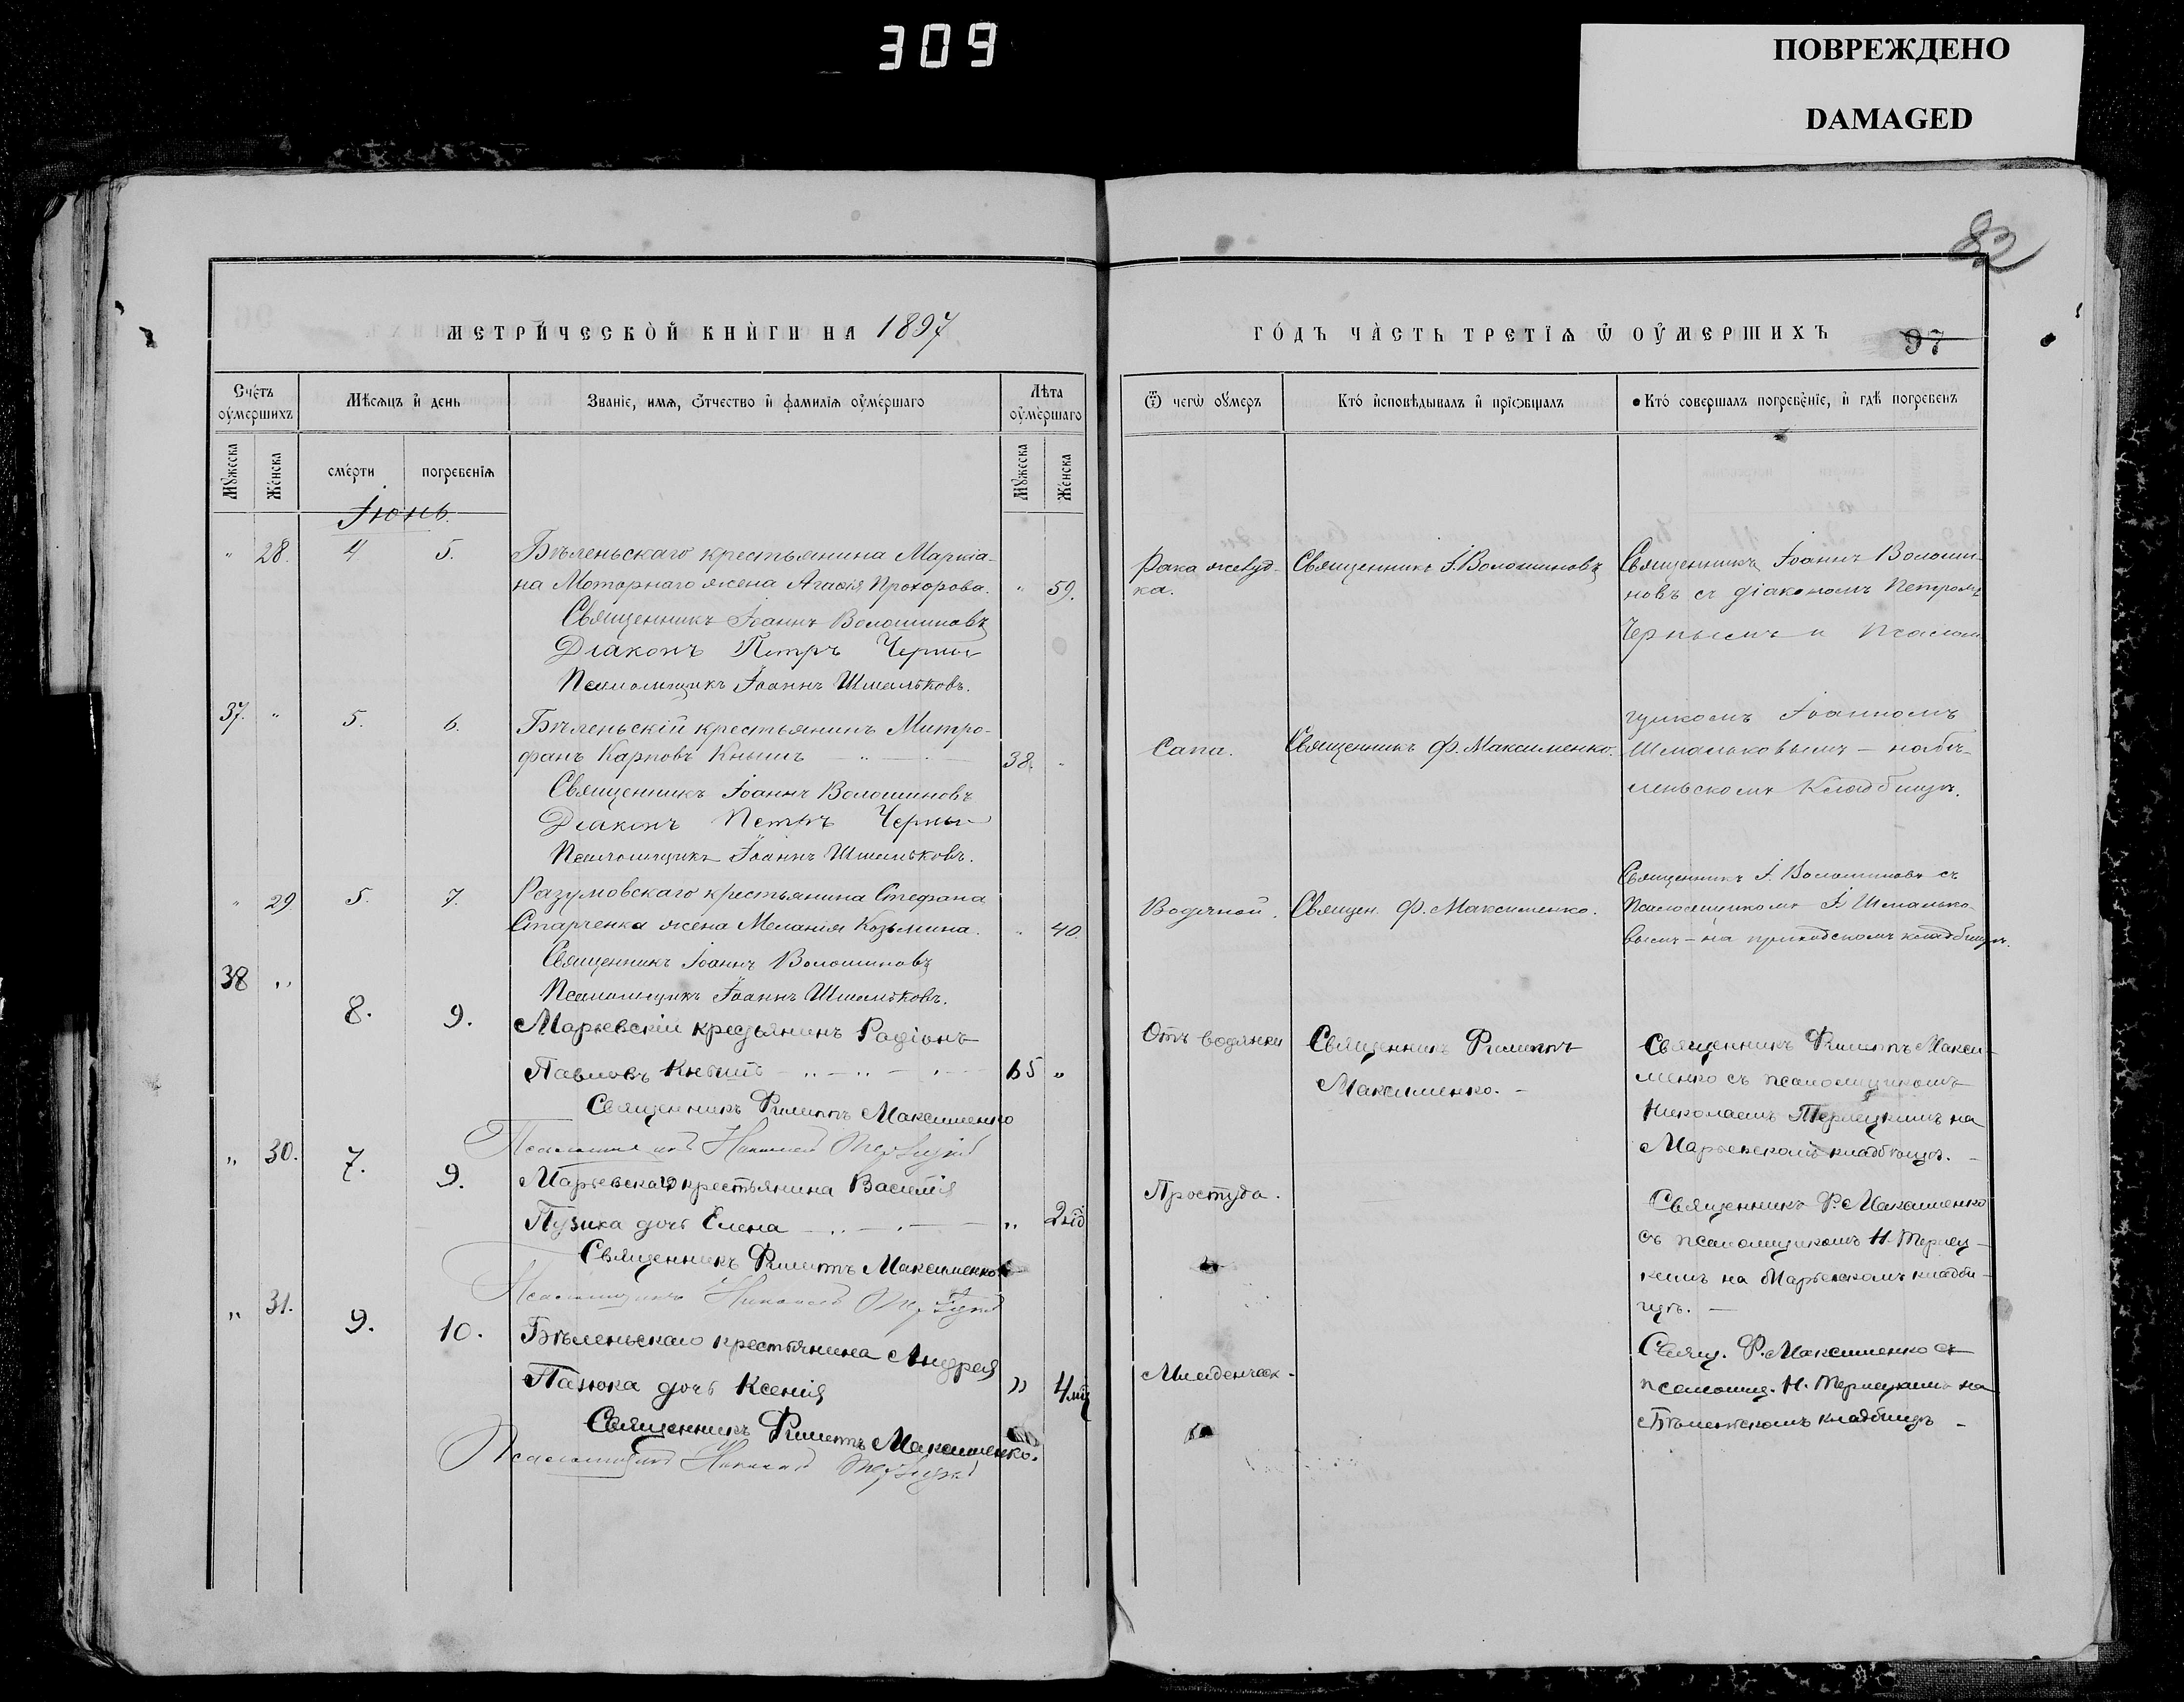 309
ПОВРЕЖДЕНО
DAMAGED
82
МЕТРИ́ЧЕСКОЙ КНИ́ГИ НА 1897
ГО́ДЪ ЧА́СТЬ ТРЕТІѦ Ѡ ОУ҆МЕРШИХЪ
97
Сче́тъ оу҆ме́ршихъ
Мѣ́сѧцъ и҆ день
Званіе, имѧ, ѿчество и҆ фамилія оу҆ме́ршаго
Лѣта оу҆ме́ршаго
Ѿ чегѡ оу҆меръ
Кто́ и҆сповѣ́дывалъ и҆ прїѡбщалъ
Кто́ совершалъ погребе́ніе, и҆ гдѣ̀ погребенъ
Мꙋжеска
Же́нска
сме́рти
погребенія
Мꙋжеска
Же́нска
Іюнь.
" 28. 4 5. Бѣленьскаго крестьянина Маркіа-
на Моторнаго жена Агафія Прохорова. " 59.
Священникъ Іоаннъ Волошиновъ
Діаконъ Петръ Черный
Псаломщикъ Іоаннъ Шмальковъ.
Рака желуд-
ка.
Священникъ І. Волошиновъ
Священникъ Іоаннъ Волоши-
новъ съ діакономъ Петромъ
Чернымъ и Псалом-
щикомъ Іоанномъ
Шмальковымъ – на бѣ-
леньскомъ Кладбищѣ.
37. " 5. 6. Бѣленьскій крестьянинъ Митро-
фанъ Карповъ Кнышъ 38. "
Священникъ Іоаннъ Волошиновъ
Діаконъ Петръ Черный
Псаломщикъ Іоаннъ Шмальковъ.
Сапа.
Священникъ Ф. Максименко.
" 29. 5. 7. Разумовскаго крестьянина Стефана
Старченка жена Меланія Козьмина. " 40.
Священникъ Іоаннъ Волошиновъ
Псаломщикъ Іоаннъ Шмальковъ.
Водяной.
Священ. Ф. Максименко.
Священникъ І. Волошиновъ съ
Псаломщикомъ І. Шмалько-
вымъ – на приходскомъ кладбищѣ.
38 " 8. 9. Марьевскій крестьянинъ Радіонъ
Павловъ Кнышъ 65 "
Священникъ Филиппъ Максименко
Псаломщикъ Николай Терлецкій
Отъ водянки
Священникъ Филиппъ
Максименко. –
Священникъ Филиппъ Макси-
менко съ псаломщикомъ
Николаемъ Терлецкимъ на
Марьевскомъ кладбищѣ. –
" 30. 7. 9. Марьевскаго крестьянина Василія
Пузика дочь Елена " 2 нѣд
Священникъ Филиппъ Максименко
Псаломщикъ Николай Терлецкій
Простуда.
Священникъ Ф. Максименко
съ псаломщикомъ Н. Терлец-
кимъ на Марьевскомъ кладби-
щѣ. –
" 31. 9. 10. Бѣленьскаго крестьянина Андрея
Пацюка дочь Ксенія " 4 мц
Священникъ Филиппъ Максименко.
Псаломщикъ Николай Терлецкій
Младенческ.
Свящ. Ф. Максименко съ
псаломщ. Н. Терлецкимъ на
Бѣленьскомъ кладбищѣ –